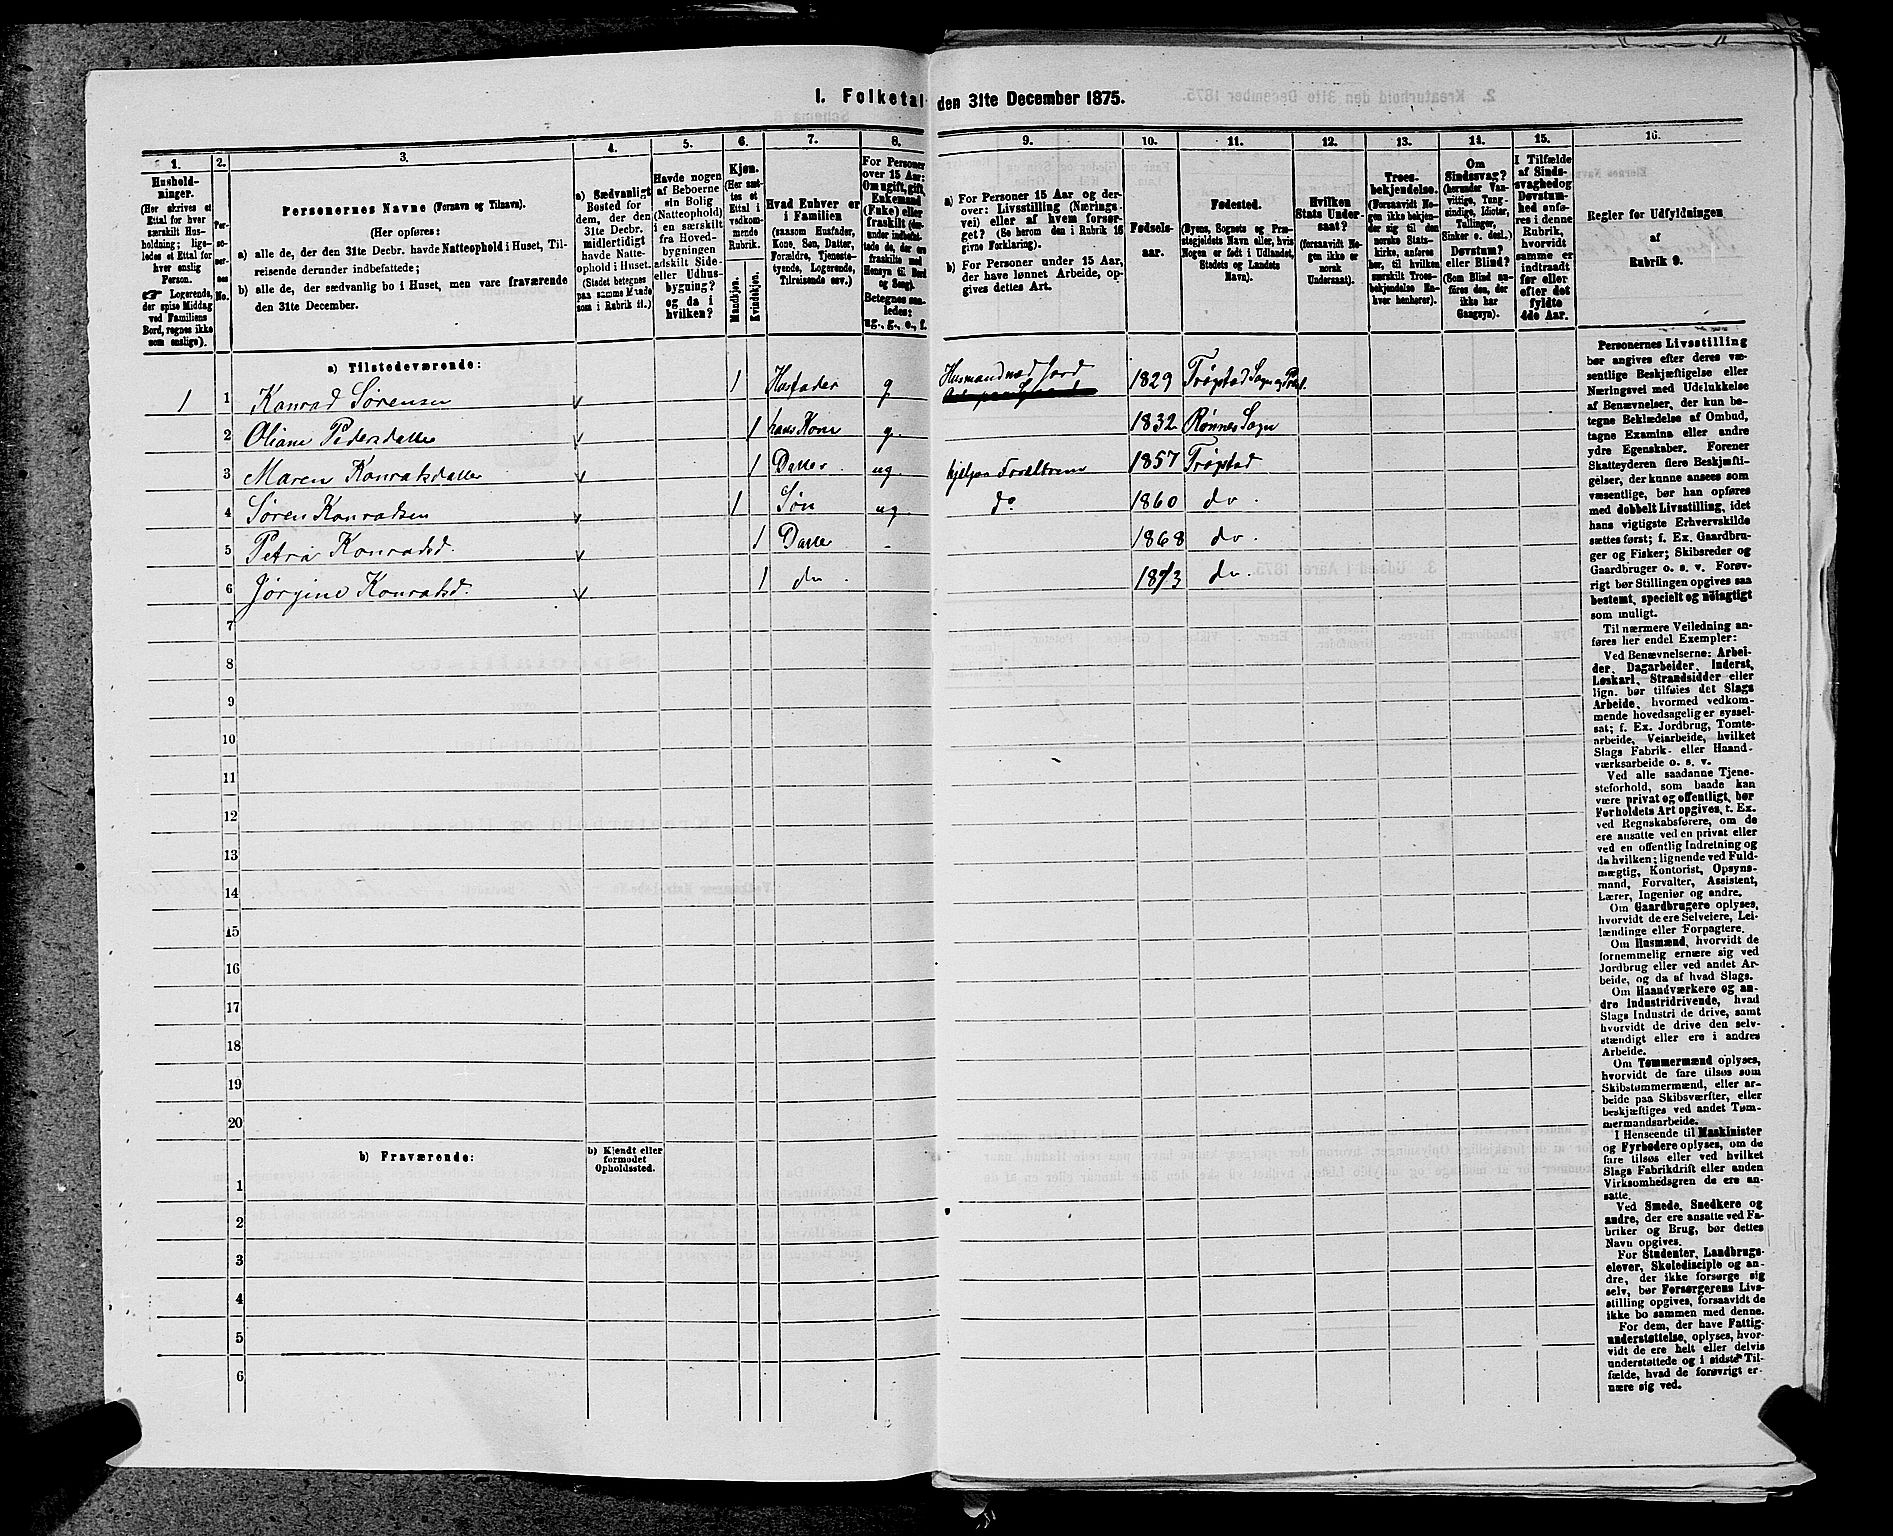 I. Folketal den 31te December 1875.
1.
2.
3.
4.
5.
6.
7.
8.
9.
10.
11.
12.
13.
14.
15.
16.
Hushold-
ninger.
(Her skrives et
Ettal for hver
særskilt Hus-
holdning; lige-
ledes et Ettal for
hver enslig
Person.
☞ Logerende,
der spise Middag
ved Familiens
Bord, regnes ikke
som enslige).
Per-
so-
ner-
nes
No.
Personernes Navne (Fornavn og Tilnavn).
(Her opføres:
a) alle de, der den 31te Decbr. havde Natteophold i Huset, Til-
reisende derunder indbefattede;
b) alle de, der sædvanlig bo i Huset, men vare fraværende
den 31te December.
a) Sædvanligt
Bosted for
dem, der den
31te Decbr.
midlertidigt
havde Natte-
ophold i Huset.
(Stedet betegnes
paa samme Maade
som i Rubrik 11.)
Havde nogen
af Beboerne
sin Bolig
(Natteophold)
i en særskilt
fra Hoved-
bygningen
adskilt Side-
eller Udhus-
bygning?
og da i
hvilken?
Kjøn.
(Her sæt-
tes et
Ettal i
vedkom-
mende
Rubrik.
Mandkjøn.
Kvindekjøn.
Hvad Enhver er
i Familien
(saasom Husfader,
Kone, Søn, Datter,
Forældre, Tjeneste-
tyende, Logerende,
Tilreisende osv.)
For Personer
over 15 Aar:
Om ugift, gift,
Enkemand
(Enke) eller
fraskilt (her-
under indbefat-
tede de, der ere
fraskilte med
Hensyn til Bord
og Seng).
Betegnes saa-
ledes:
ug., g., e., f.
a) For Personer 15 Aar og der-
over: Livsstilling (Nærings-
vei) eller af hvem forsør-
get? (Se herom den i Rubrik 16
givne Forklaring).
b) For Personer under 15 Aar,
der have lønnet Arbeide, op-
gives dettes Art.
Fødsels-
aar.
Fødested.
(Byens, Sognets og Præ-
stegjeldets Navn eller, hvis
Nogen er født i Udlandet,
Stedets og Landets
Navn).
Hvilken
Stats Under-
saat?
(forsaavidt No-
gen ikke er
norsk
Undersaat).
Troes-
bekjendelse.
(Forsaavidt No-
gen ikke bekjen-
der sig til den
norske Stats-
kirke, anføres
her, til hvilken
særskilt Troes-
bekjendelse En-
hver henhører).
Om
Sindssvag?
(herunder Van-
vittige, Tung-
sindige, Idioter,
Tullinger,
Sinker o. desl.)
Døvstum?
eller Blind?
(Som Blind an-
føres den, der
ikke har
Gangsyn).
I Tilfælde
af Sinds-
svaghed og
Døvstum-
hed anfø-
res i denne
Rubrik,
hvorvidt
samme er
indtraadt
før eller
efter det
fyldte
4de Aar.
Regler for Udfyldningen
af
Rubrik 9.
a) Tilstedeværende:
1 1 Konrad Sørensen 1 Husfader g Husmand med Jord 1829 Trøgstad Sogn og
2 Oliane Pedersdatter 1 hans Kone g. 1832 Rønnes Sogn
3 Maren Konradsdatter 1 Datter ug. hjelper Forældrene 1857 Trøgstad
4 Søren Konradsen 1 Søn ug. do 1860 do.
5 Petra Konradsd. 1 Datter - 1868 do.
6 Jørgine Konradsd. 1 do. 1873 do.
7
8
9
10
11
12
13
14
15
16
17
18
19
20
b) Fraværende:
b) Kjendt eller
formodet
Opholdssted.
1
2
3
4
5
6
Personernes Livsstilling
bør angives efter deres væ-
sentlige Beskjæftigelse eller
Næringsvei med Udelukkelse
af Benævnelser, der kun be-
tegne Beklædelse af Ombud,
tagne Examina eller andre
ydre Egenskaber. Forener
Skatteyderen flere Beskjæfti-
gelser, der kunne ansees som
væsentlige, bør han opføres
med dobbelt Livsstilling, idet
hans vigtigste Erhvervskilde
sættes først; f. Ex. Gaardbru-
ger og Fisker; Skibsreder og
Gaardbruger o. s. v. Forøv-
rigt bør Stillingen opgives saa
bestemt, specielt og nöiagtigt
som muligt.
Til nærmere Veiledning an-
føres her endel Exempler:
Ved Benævnelserne: Arbei-
der, Dagarbeider, Inderst,
Løskarl, Strandsidder eller
lign. bør tilføies det Slags
Arbeide, hvormed vedkom-
mende hovedsagelig er syssel-
sat; f. Ex. Jordbrug, Tomte-
arbeide, Veiarbeide, hvilket
Slags Fabrik- eller Haand-
værksarbeide o. s. v.
Ved alle saadanne Tjene-
steforhold, som baade kan
være privat og offentligt, bør
Forholdets Art opgives, t. Ex.
ved Regnskabsførere, om de
ere ansatte ved en privat eller
ved en offentlig Indretning og
da hvilken; lignende ved Fuld-
mægtig, Kontorist, Opsyns-
mand, Forvalter, Assistent,
Lærer, Ingeniør og andre.
Om Gaardbrugere oplyses,
hvorvidt de ere Selveiere, Lei-
lændinge eller Forpagtere.
Om Husmænd, hvorvidt de
fornemmelig ernære sig ved
Jordbrug eller ved andet Ar-
beide, og da af hvad Slags.
Om Haandværkere og an-
dre Industridrivende, hvad
Slags Industri de drive, samt
hvorvidt de drive den selv-
stændigt eller ere i andres
Arbeide.
Om Tømmermænd oplyses,
hvorvidt de fare tilsøs som
Skibstømmermænd, eller ar-
beide paa Skibsværfter, eller
beskjæftiges ved andet Tøm-
mermandsarbeide.
I Henseende til Maskinister
og Fyrbødere oplyses, om de
fare tilsøs eller ved hvilket
Slags Fabrikdrift eller anden
Virksomhedsgren de ere an-
satte.
Ved Smede, Snedkere og
andre, der ere ansatte ved Fa-
briker og Brug, bør dettes
Navn opgives.
For Studenter, Landbrugs-
elever, Skoledisciple og an-
dre, der ikke forsørge sig
selv, bør Forsørgerens Livs-
stilling opgives, forsaavidt de
ikke bo sammen med denne.
For dem, der have Fattig-
understøttelse, oplyses, hvor-
vidt de ere helt eller delvis
understøttede og i sidste Til-
fælde, hvad de forøvrigt er-
nære sig ved.